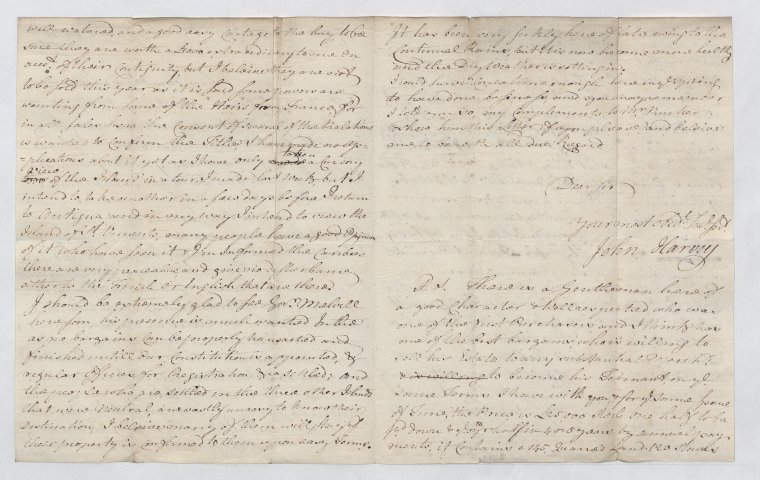 well watered and a good easy Cartage to the bay to be
sure they are worth a Good extraordinary some on
acct. of their Contiguity, but I beleive they are not
to be sold this year as it is said some powers are
wanting from some of the Heirs from France, for
in all Sales here the Consent of several of the Relations
is wanted to Confirm the Titles I have made no ap-
plications about it yet as I have only taken a Cursory
view of the Island in a tour I made last Week, but I
intend to take another in a few days before I return
to Antigua and in my way I intend to view the
Island of St Vincents, many people have a good Opinion
of it who have seen it & I'm informed the Caribes
there are very peaceable and give no disturbance
either to the french or English that are there.
I should be extremely glad to see Govr. Melvill
here soon his presence is much wanted In the
as no bargains can be properly transacted and
finished untill Our Constitution is appointed, &
regular Offices for Registration & ca settled; and
the people who are settled in the three other Islands
that were Neutral, are vastly uneasy to know their
Destination, I beleive many of them will stay if
their property is confirmed to them upon easy terms.
It has been very sickly here of late owing to the
Continual Rains, but It is now become more healthy
and the Dry Weather is setting in.
I could have Lands here enough
to have done business and you may remember
I told you so, my compliments to Mr Rucker
shew him this letter if you please, and beleive
me to be with all due Regard
Dear Sir
Your most Obedt. hble Servt
John Harvey
P.S. There is a Gentleman here of
a good Character & well respected who was
one of the first Purchasers and I think has
one of the best bargains, who is willing to
sell his Estate to any substantial Merch.t
& is willing to become his Tennant on ye
same Terms I have with you for ye same space
of time, the Price is £5000 Sterls one half to be
pd down & ye othr half in 4 or 5 years by annual pay-
ments, it Contains 145 Quarres Land 120 Slaves